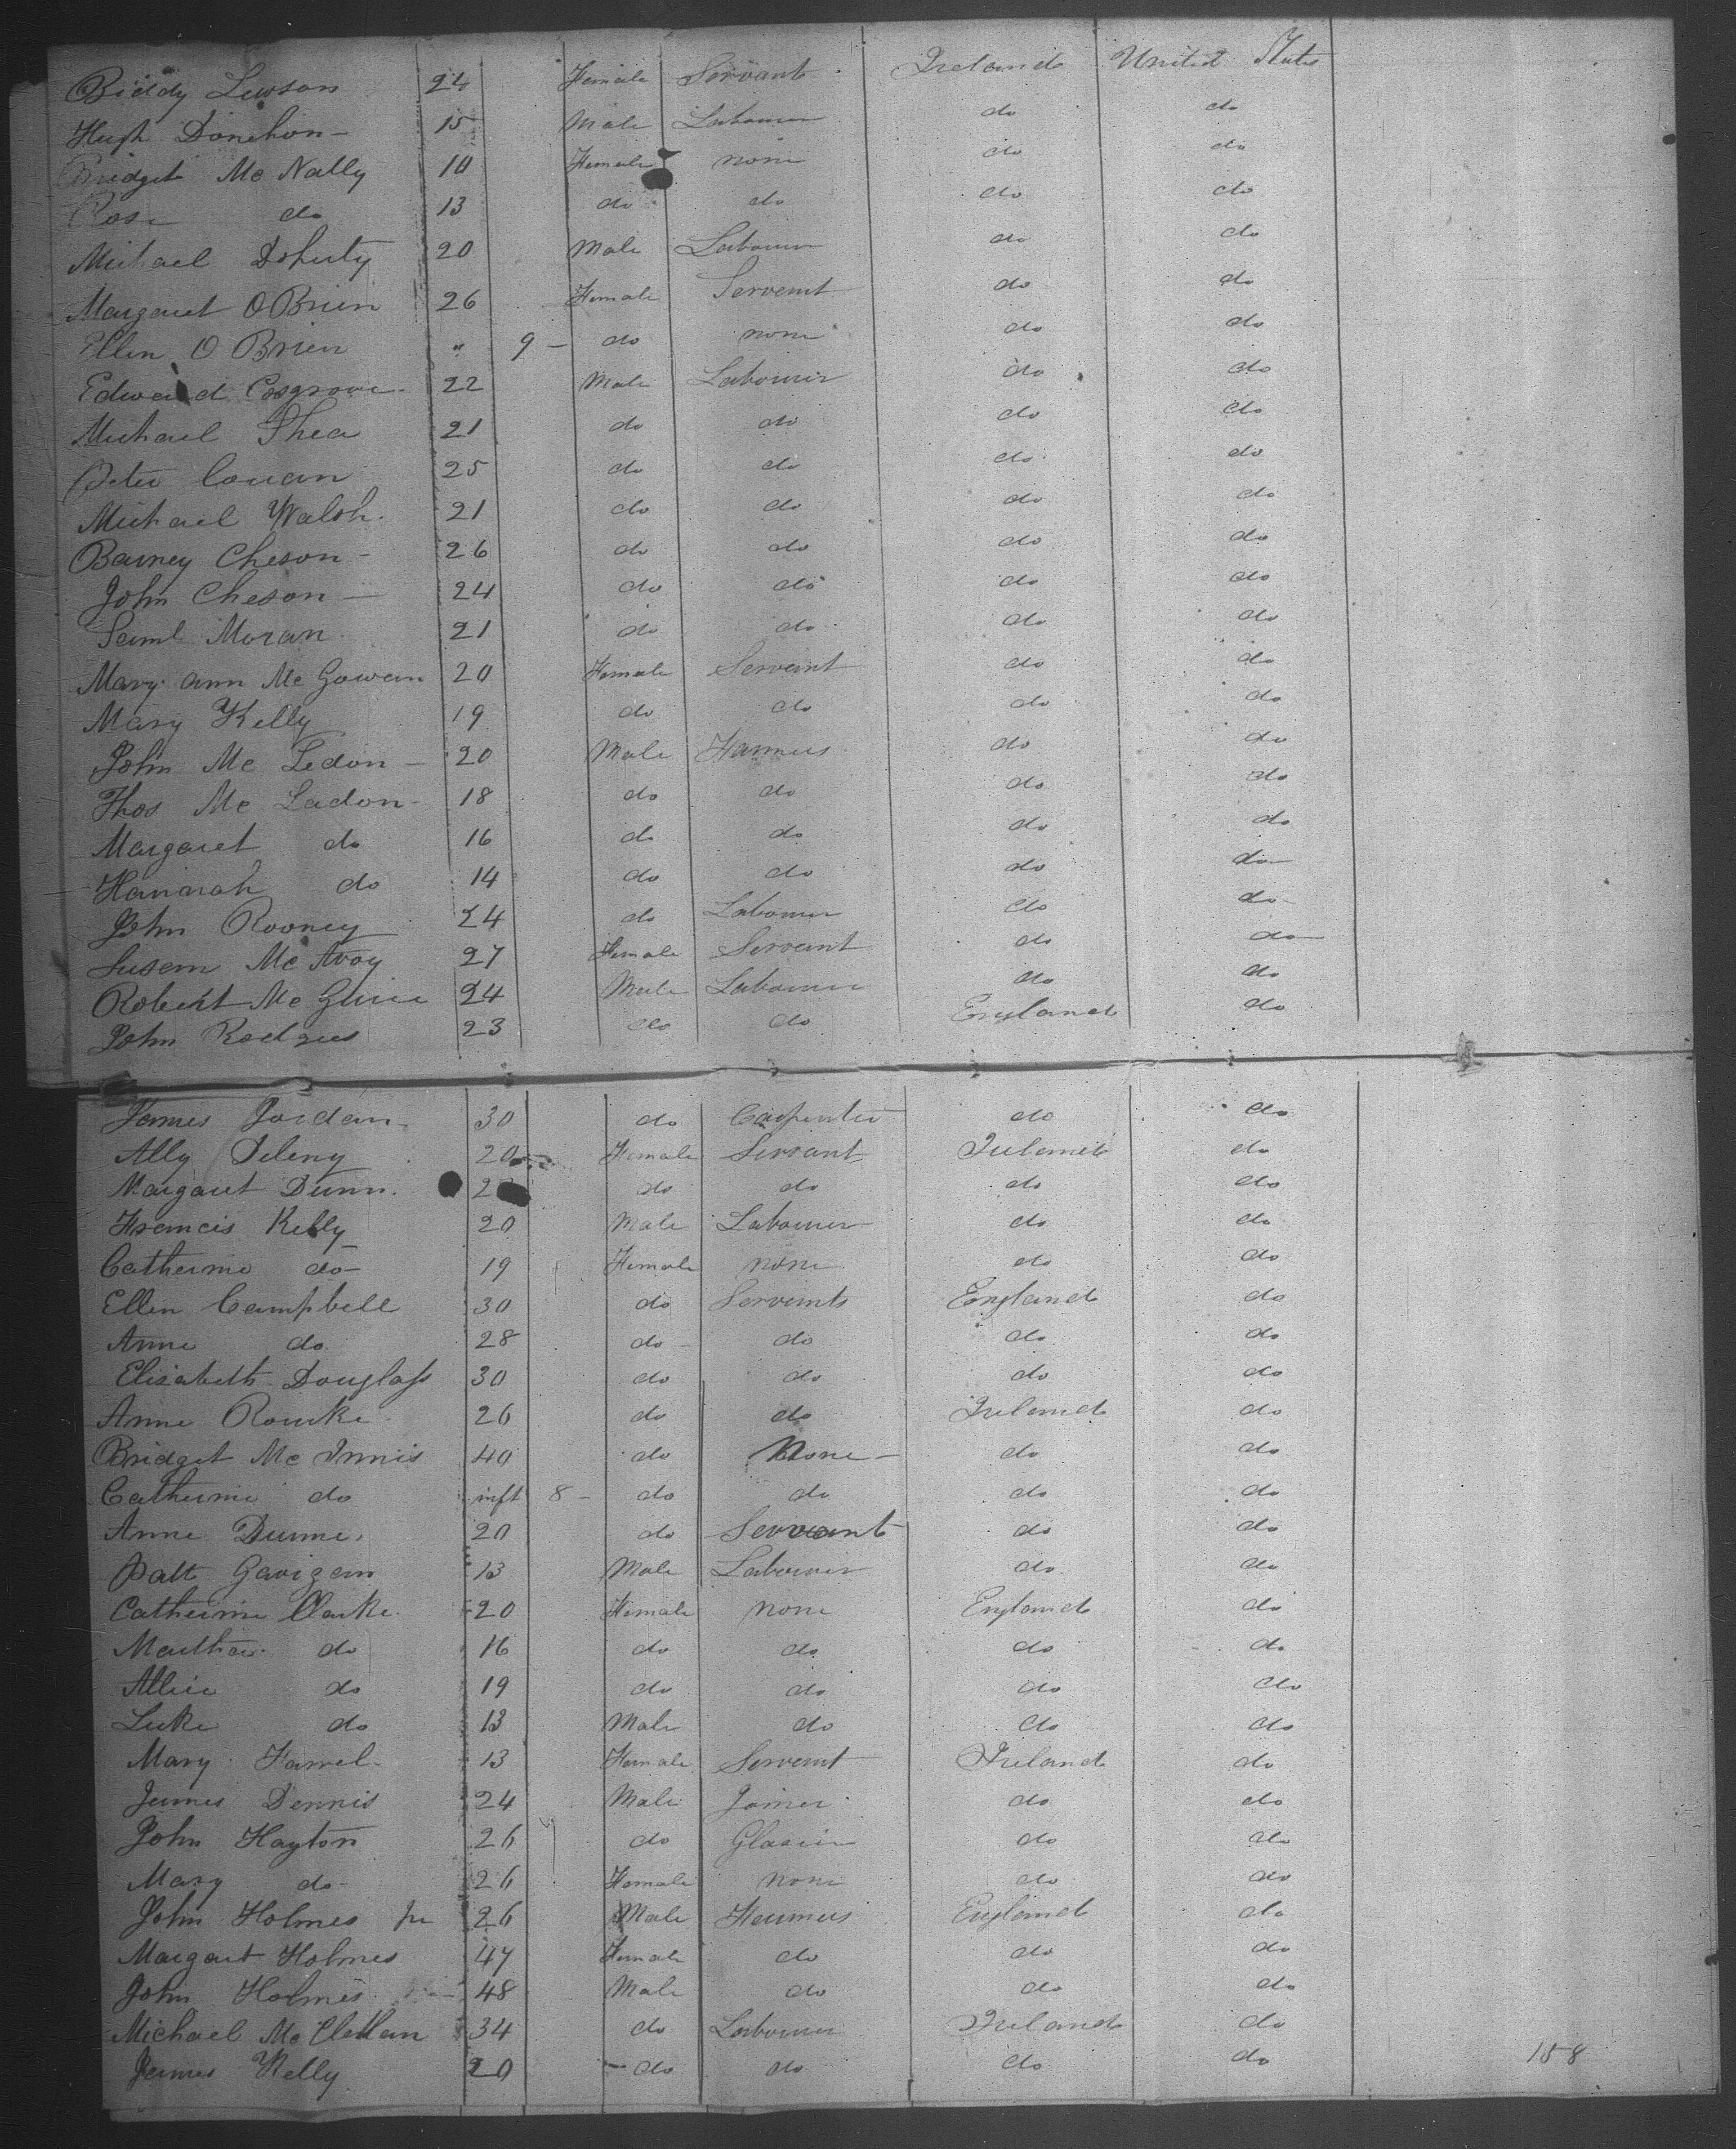 Biddy Lewson 24 Female Servant Ireland United States
Hugh Donehon - 15 Male Labourer do do
Bridget Mc Nally 10 Female none do do
Rose do 13 do do do do
Michael Doherty 20 Male Labourer do do
Margaret O Brien 26 Female Servant do do
Ellen O Brien " 9 - do none do do
Edward Cosgrove 22 Male Labourer do do
Michael Shea 21 do do do do
Peter 25 do do do do
Michael Walsh 21 do do do do
Barney Cheson - 26 do do do do
John Cheson - 24 do do do do
Saml Moran 21 do do do do
Mary Ann Mc Gowan 20 Female Servant do do
Mary Kelly 19 do do do do
John Mc Ledon - 20 Male Farmers do do
Thos Mc Ladon - 18 do do do do
Margaret do 16 do do do do
Hannah do 14 do do do do
John Rooney 24 do Labourer do do
Susan Mc Avoy 27 Female Servant do do
Robert Mc Guire 24 Male Labourer do do
John Rodgers 23 do do England do
James Jordan - 30 do Carpenter do do
Ally Deleny 20 Female Servant Ireland do
Margaret Dunn. do do do do
Francis Kelly 20 Male Labourer do do
Catherine do - 19 Female none do do
Ellen Campbell 30 do Servants England do
Anne do 28 do - do do do
Elizabeth Douglass 30 do do do do
Anne Rourke 26 do do Ireland do
Bridget Mc Innis 40 do None - do do
Catherine do inft 8 - do do do do
Anne Dunne 20 do Servant do do
Patt Gavigan 13 Male Labourer do do
Catherine Clarke 20 Female none England do
Martha do 16 do do do do
Allice do 19 do do do do
Luke do 13 Male do do do
Mary Farrel 13 Female Servant Ireland do
James Dennis 24 Male Joiner do do
John Hayton 26 do Glazier do do
Mary do - 26 Female none do do
John Holmes jn 26 Male Farmers England do
Margaret Holmes 47 Female do do do
John Holmes 48 Male do do do
Michael Mc Clellan 34 do Labourer Ireland do
James Kelly 20 do do do do 158